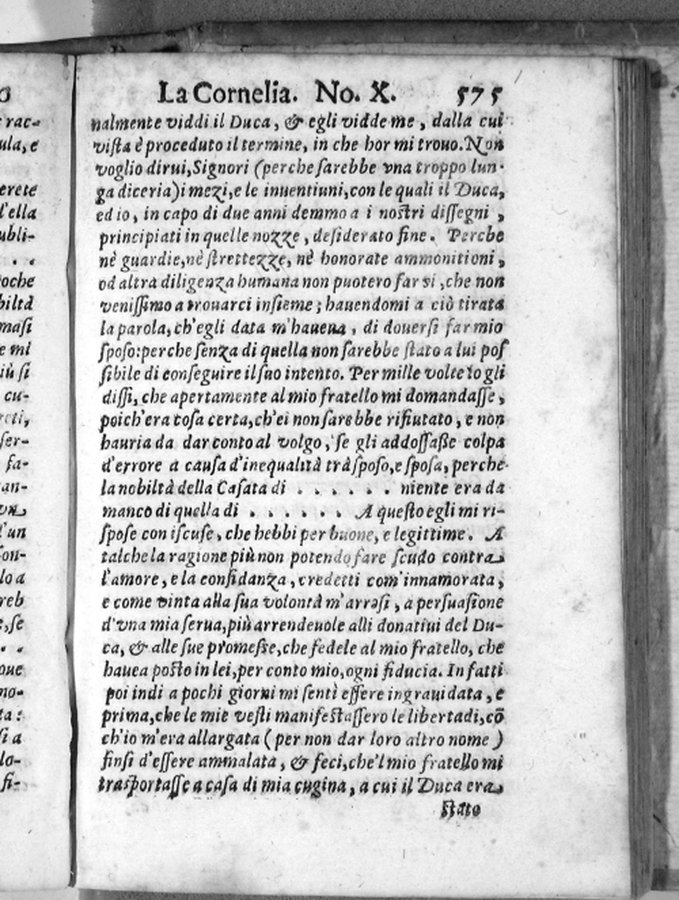 La Cornelia. No. X. 575
nalmente viddi il Duca, & egli vidde me, dalla cui
vista è proceduto il termine, in che hor mi trouo. Non
voglio dirui, Signori (perche sarebbe vna troppo lun-
ga diceria) i mezi, e le inuentiuni, con le quali il Duca,
ed io, in capo di due anni demmo a i nostri dissegni,
principiati in quelle nozze, desiderato fine. Perche
nè guardie, nè strettezze, nè honorate ammonitioni,
od altra diligenza humana non puotero far si, che non
venissimo a trouarci insieme; hauendomi a ciò tirata
la parola, ch'egli data m'haueua, di douersi far mio
sposo: perche senza di quella non sarebbe stato a lui pos
sibile di conseguire il suo intento. Per mille volte io gli
dissi, che apertamente al mio fratello mi domandasse,
poich'era cosa certa, ch'ei non sarebbe rifiutato, e non
hauria da dar conto al volgo, se gli addossaße colpa
d'errore a causa d'inequalità trà sposo, e sposa, perche
la nobiltà della Casata di . . . . . . niente era da
manco di quella di . . . . . . A questo egli mi ri-
spose con iscuse, che hebbi per buone, e legittime. A
talche la ragione più non potendo fare scudo contra
l'amore, e la confidanza, credetti com'innamorata,
e come vinta alla sua volontà m'arresi, a persuasione
d'vna mia serua, più arrendeuole alli donatiui del Du-
ca, & alle sue promesse, che fedele al mio fratello, che
hauea posto in lei, per conto mio, ogni fiducia. In fatti
poi indi a pochi giorni mi sentì essere ingrauidata, e
prima, che le mie vesti manifestassero le libertadi, cō
ch'io m'era allargata (per non dar loro altro nome)
finsi d'essere ammalata, & feci, che'l mio fratello mi
trasportasse a casa di mia cugina, a cui il Duca era
stato